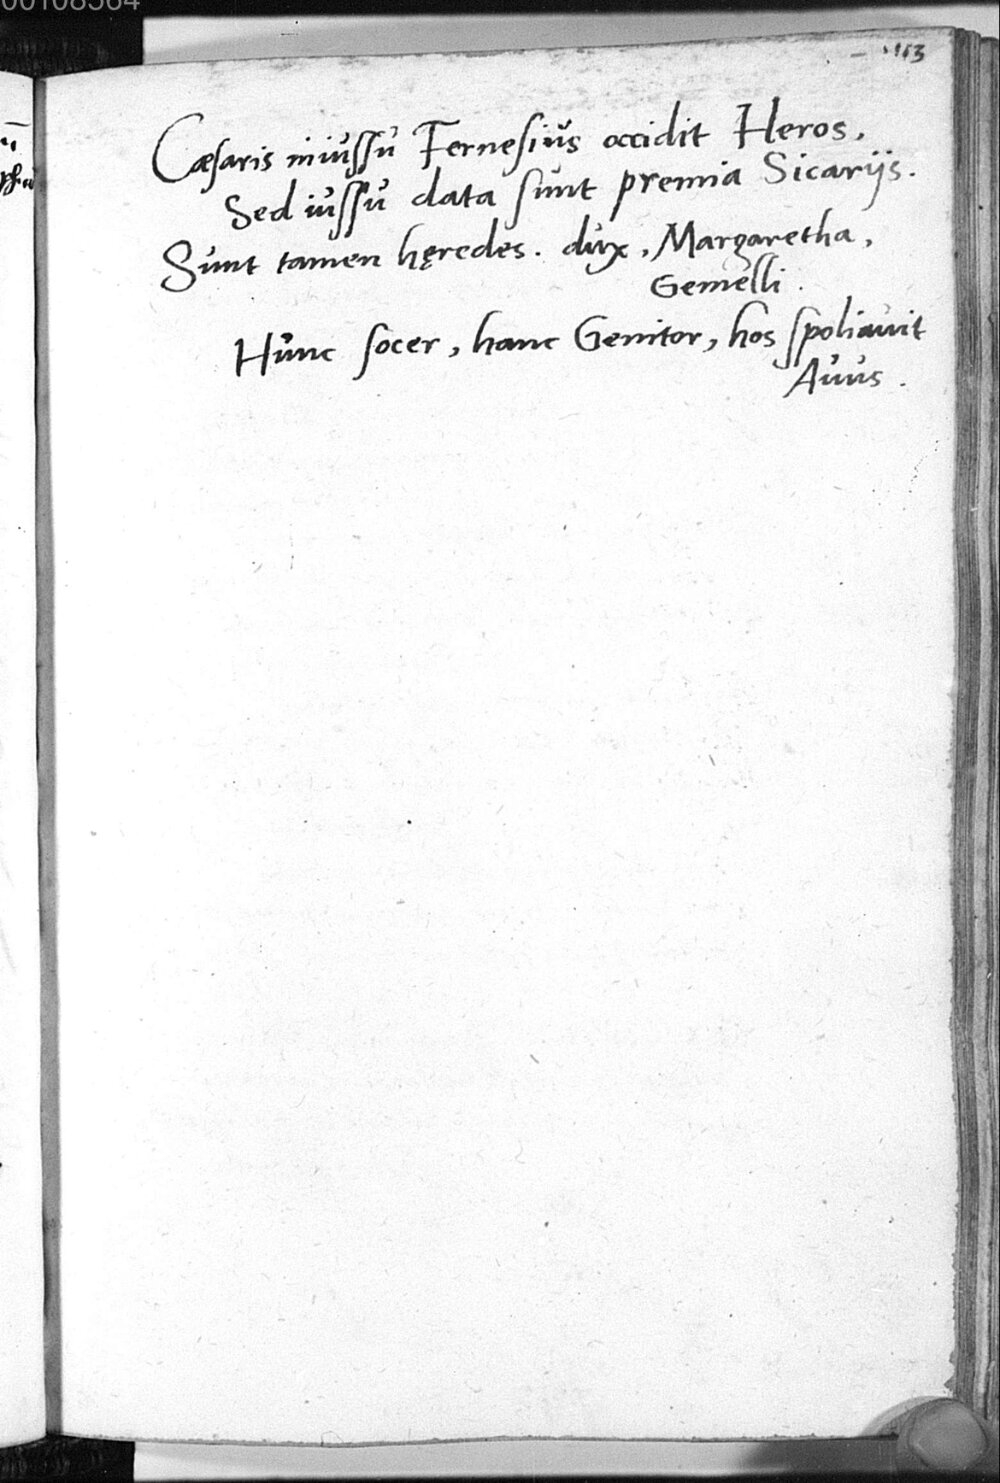 113
Cæsaris iniussu Fernesius occidit Heros,
Sed iussu data sunt premia Sicarijs.
Sunt tamen hęredes. dux, Margaretha,
Gemelli.
Hunc socer, hanc Genitor, hos spoliauit
Auus.